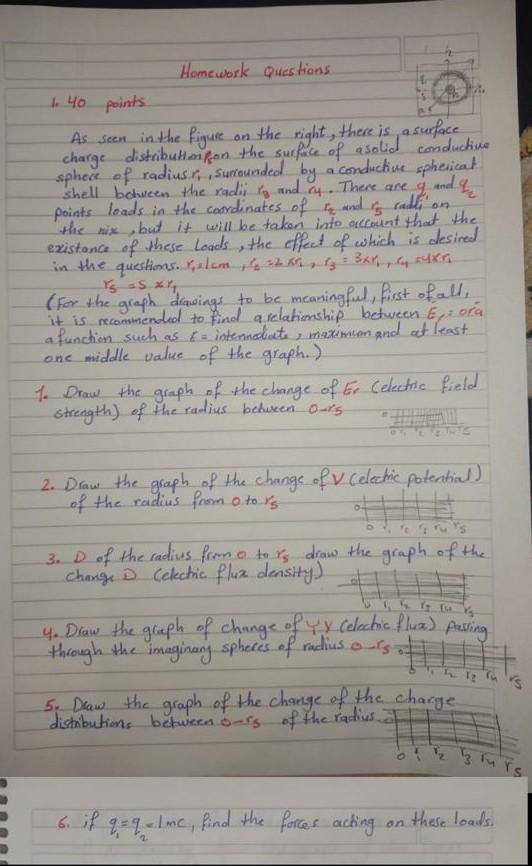 Homework Questions
1. 40 points
As seen in the figure on the right, there is a surface
charge distribution on the surface of a solid conductive
sphere of radius r1, surrounded by a conductive spherical
shell between the radii r3 and r4. There are q1 and q2
points loads in the coordinates of r2 and r5 radii on
the , but it will be taken into account that the
existance of these Loads, the effect of which is desired
in the questions. r1=1cm, r2=2xr1, r3=3xr1, r4=4xr1
r5=5xr1
(For the graph drawings to be meaningful, first of all,
it is recommended to find a relationship between Er = or a
a function such as E = intermediate, maximum and at least
one middle value of the graph.)
1. Draw the graph of the change of Er (electric field
strength) of the radius between 0-r5
0 r1 r2 r3 r4 r5
2. Draw the graph of the change of V (electric potential)
of the radius from 0 to r5
0 r1 r2 r3 r4 r5
3. D of the radius from 0 to r5 draw the graph of the
change D (electric flux density)
r1 r2 r3 r4 r5
4. Draw the graph of change of (electric flux) passing
through the imaginary spheres of radius 0-r5
0 r1 r2 r3 r4 r5
5. Draw the graph of the change of the charge
distributions between 0-r5 of the radius.
0 r1 r2 r3 r4 r5
6. if q1=q2=1mc, find the forces acting on these loads.